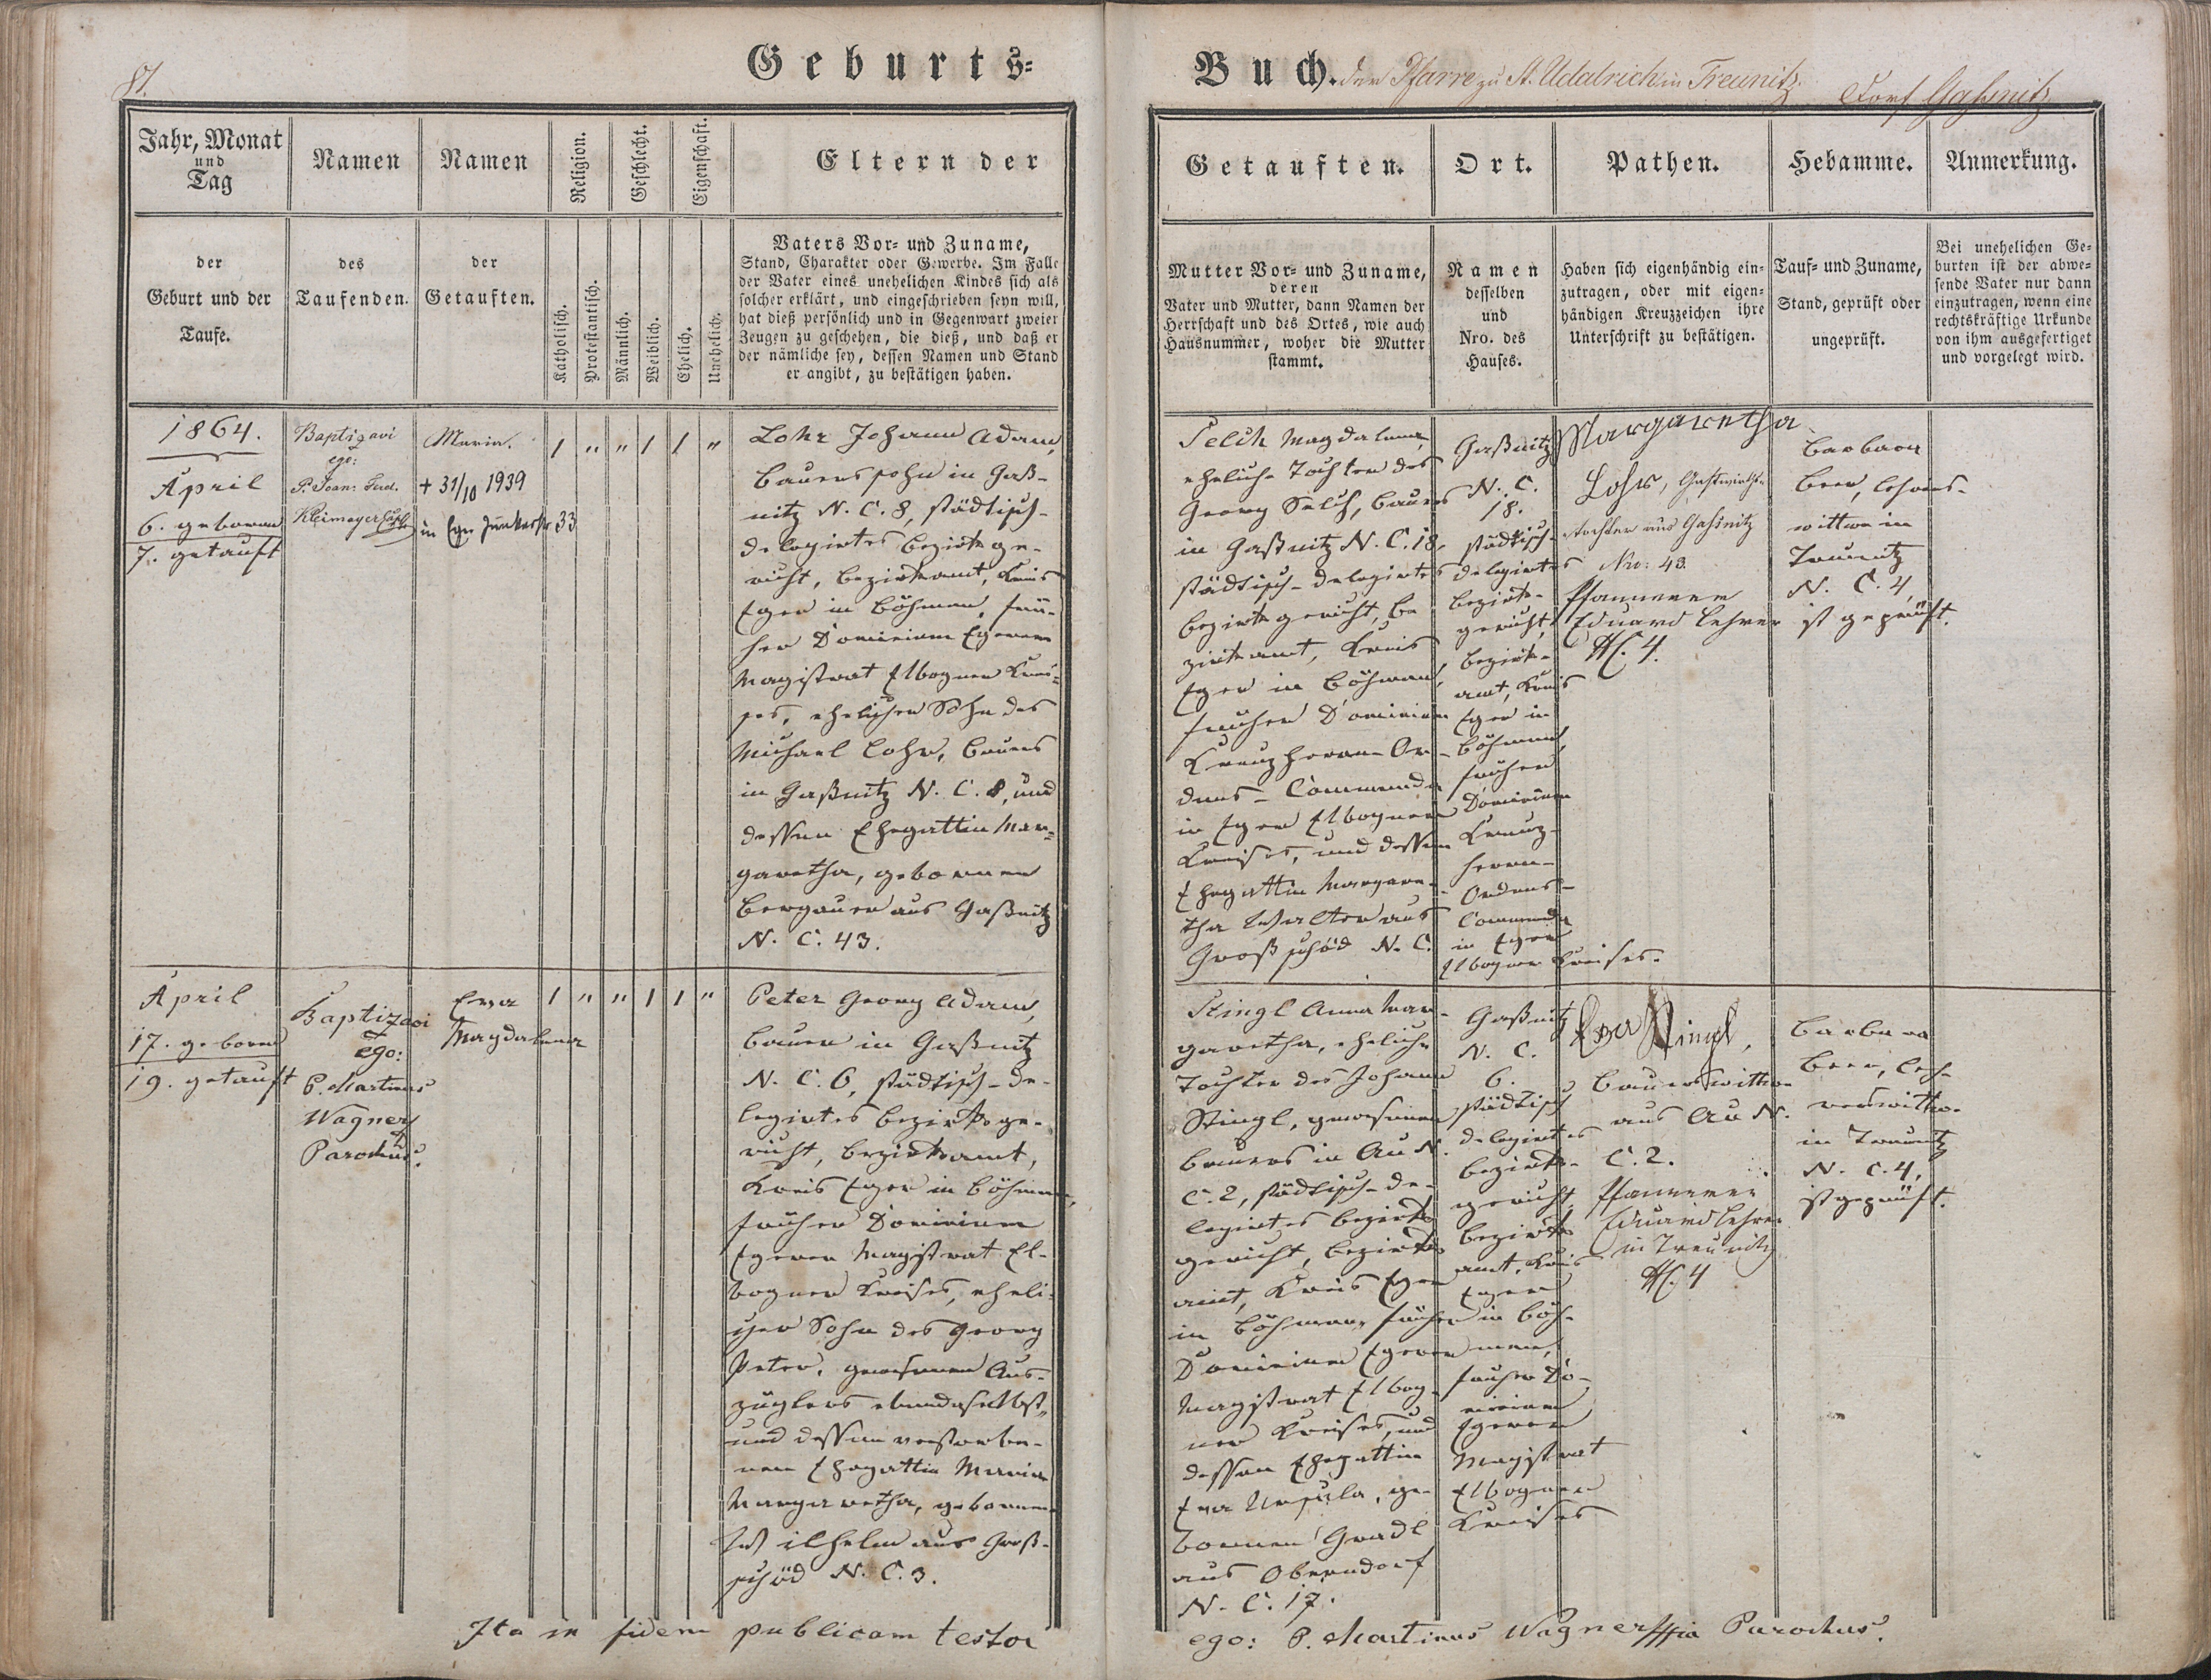 87.
Geburts-
Buch. der Pfarre zu St. Udalrich in Treunitz.
Dorf Gaßnitz
Jahr, Monat
und
Tag
der
Geburt und der
Taufe.
Namen
des
Taufenden.
Namen
der
Getauften.
Religion.
Katholisch.
Protestantisch.
Geschlecht.
Männlich.
Weiblich.
Eigenschaft.
Ehelich.
Unehelich.
Eltern der
Vaters Vor- und Zuname,
Stand, Charakter oder Gewerbe. Im Falle
der Vater eines unehelichen Kindes sich als
solcher erklärt, und eingeschrieben seyn will,
hat dieß persönlich und in Gegenwart zweier
Zeugen zu geschehen, die dieß, und daß er
der nämliche sey, dessen Namen und Stand
er angibt, zu bestätigen haben.
Getauften.
Mutter Vor- und Zuname,
deren
Vater und Mutter, dann Namen der
Herrschaft und des Ortes, wie auch
Hausnummer, woher die Mutter
stammt.
Ort.
Namen
desselben
und
Nro. des
Hauses.
Pathen.
Haben sich eigenhändig ein-
zutragen, oder mit eigen-
händigen Kreuzzeichen ihre
Unterschrift zu bestätigen.
Hebamme.
Tauf- und Zuname,
Stand, geprüft oder
ungeprüft.
Anmerkung.
Bei unehelichen Ge-
burten ist der abwe-
sende Vater nur dann
einzutragen, wenn eine
rechtskräftige Urkunde
von ihm ausgefertiget
und vorgelegt wird.
1864.
April
6. geboren
7. getauft
Baptizavi
ego:
P. Joan. Ferd.
Kleimayer
Maria.
+ 31/10 1939
in Eger 33
1 " " 1 1 "
Lohr Johann Adam,
Bauerssohn in Gaß-
nitz N. C. 8, städtisch-
delegirtes Bezirksge-
richt, Bezirksamt, Kreis
Eger in Böhmen, frü-
her Dominium Egerer
Magistrat Elbogner Krei-
ses, ehelicher Sohn des
Michael Lohr, Bauers
in Gaßnitz N. C. 8, und
dessen Ehegattin Mar-
garetha, gebornen
Bergauer aus Gaßnitz
N. C. 43.
Selch Magdalena,
eheliche Tochter des
Georg Selch, Bauers
in Gaßnitz N. C. 18,
städtisch-delegirtes
Bezirksgericht, Be-
zirksamt, Kreis
Eger in Böhmen,
früher Dominium
Kreuzherrn-Or-
dens-Commenda
in Eger Elbogner
Kreises, und dessen
Ehegattin Margare-
tha Walter aus
Großschüd N. C.
Gaßnitz
N. C.
18.
städtisch-
delegirtes
Bezirks-
gericht,
Bezirks-
amt, Kreis
Eger in
Böhmen,
früher
Dominium
Kreuz-
herrn-
Ordens-
Commenda
in Eger
Elbogner Kreises.
Margaretha
Lohr, Gastwirths-
tochter aus Gaßnitz
Nro: 43.
Pfannerer
Eduard Lehrer
HC. 4.
Barbara
Beer, Lehrers-
wittwe in
Treunitz
N. C. 4,
ist geprüft.
April
17. geboren
19. getauft
Baptizavi
ego:
P. Martinus
Wagner
Parochus.
Eva
Magdalena
1 " " 1 1 "
Peter Georg Adam,
Bauer in Gaßnitz
N. C. 6, städtisch-de-
legirtes Bezirksge-
richt, Bezirksamt,
Kreis Eger in Böhmen,
früher Dominium
Egerer Magistrat El-
bogner Kreises, eheli-
cher Sohn des Georg
Peter, gewesenen Aus-
züglers ebendaselbst,
und dessen verstorbe-
nen Ehegattin Maria
Margaretha, gebornen
Wilhelm aus Groß-
schüd N. C. 3.
Stingl Anna Mar-
garetha, eheliche
Tochter des Johann
Stingl, gewesenen
Bauers in Au N.
C. 2, städtisch-de-
legirtes Bezirks-
gericht, Bezirks-
amt, Kreis Eger
in Böhmen, früher
Dominium Egerer
Magistrat Elbog-
ner Kreises, und
dessen Ehegattin
Eva Ursula, ge-
bornen Gradl
aus Oberndorf
N. C. 17.
Gaßnitz
N. C.
6.
städtisch
delegirtes
Bezirks-
gericht,
Bezirks
amt, Kreis
Eger
in Böh-
men,
früher Do-
minium
Egerer
Magistrat
Elbogner
Kreises
Eva Stingl,
Bauerswittwe
aus Au N.
C. 2.
Pfannerer
Eduard Lehrer
in Treunitz
HC. 4
Barbara
Beer, Leh-
rerswittwe
in Treunitz
N. C. 4,
ist geprüft.
Ita in fidem publicam testor
ego: P. Martinus Wagner Parochus.